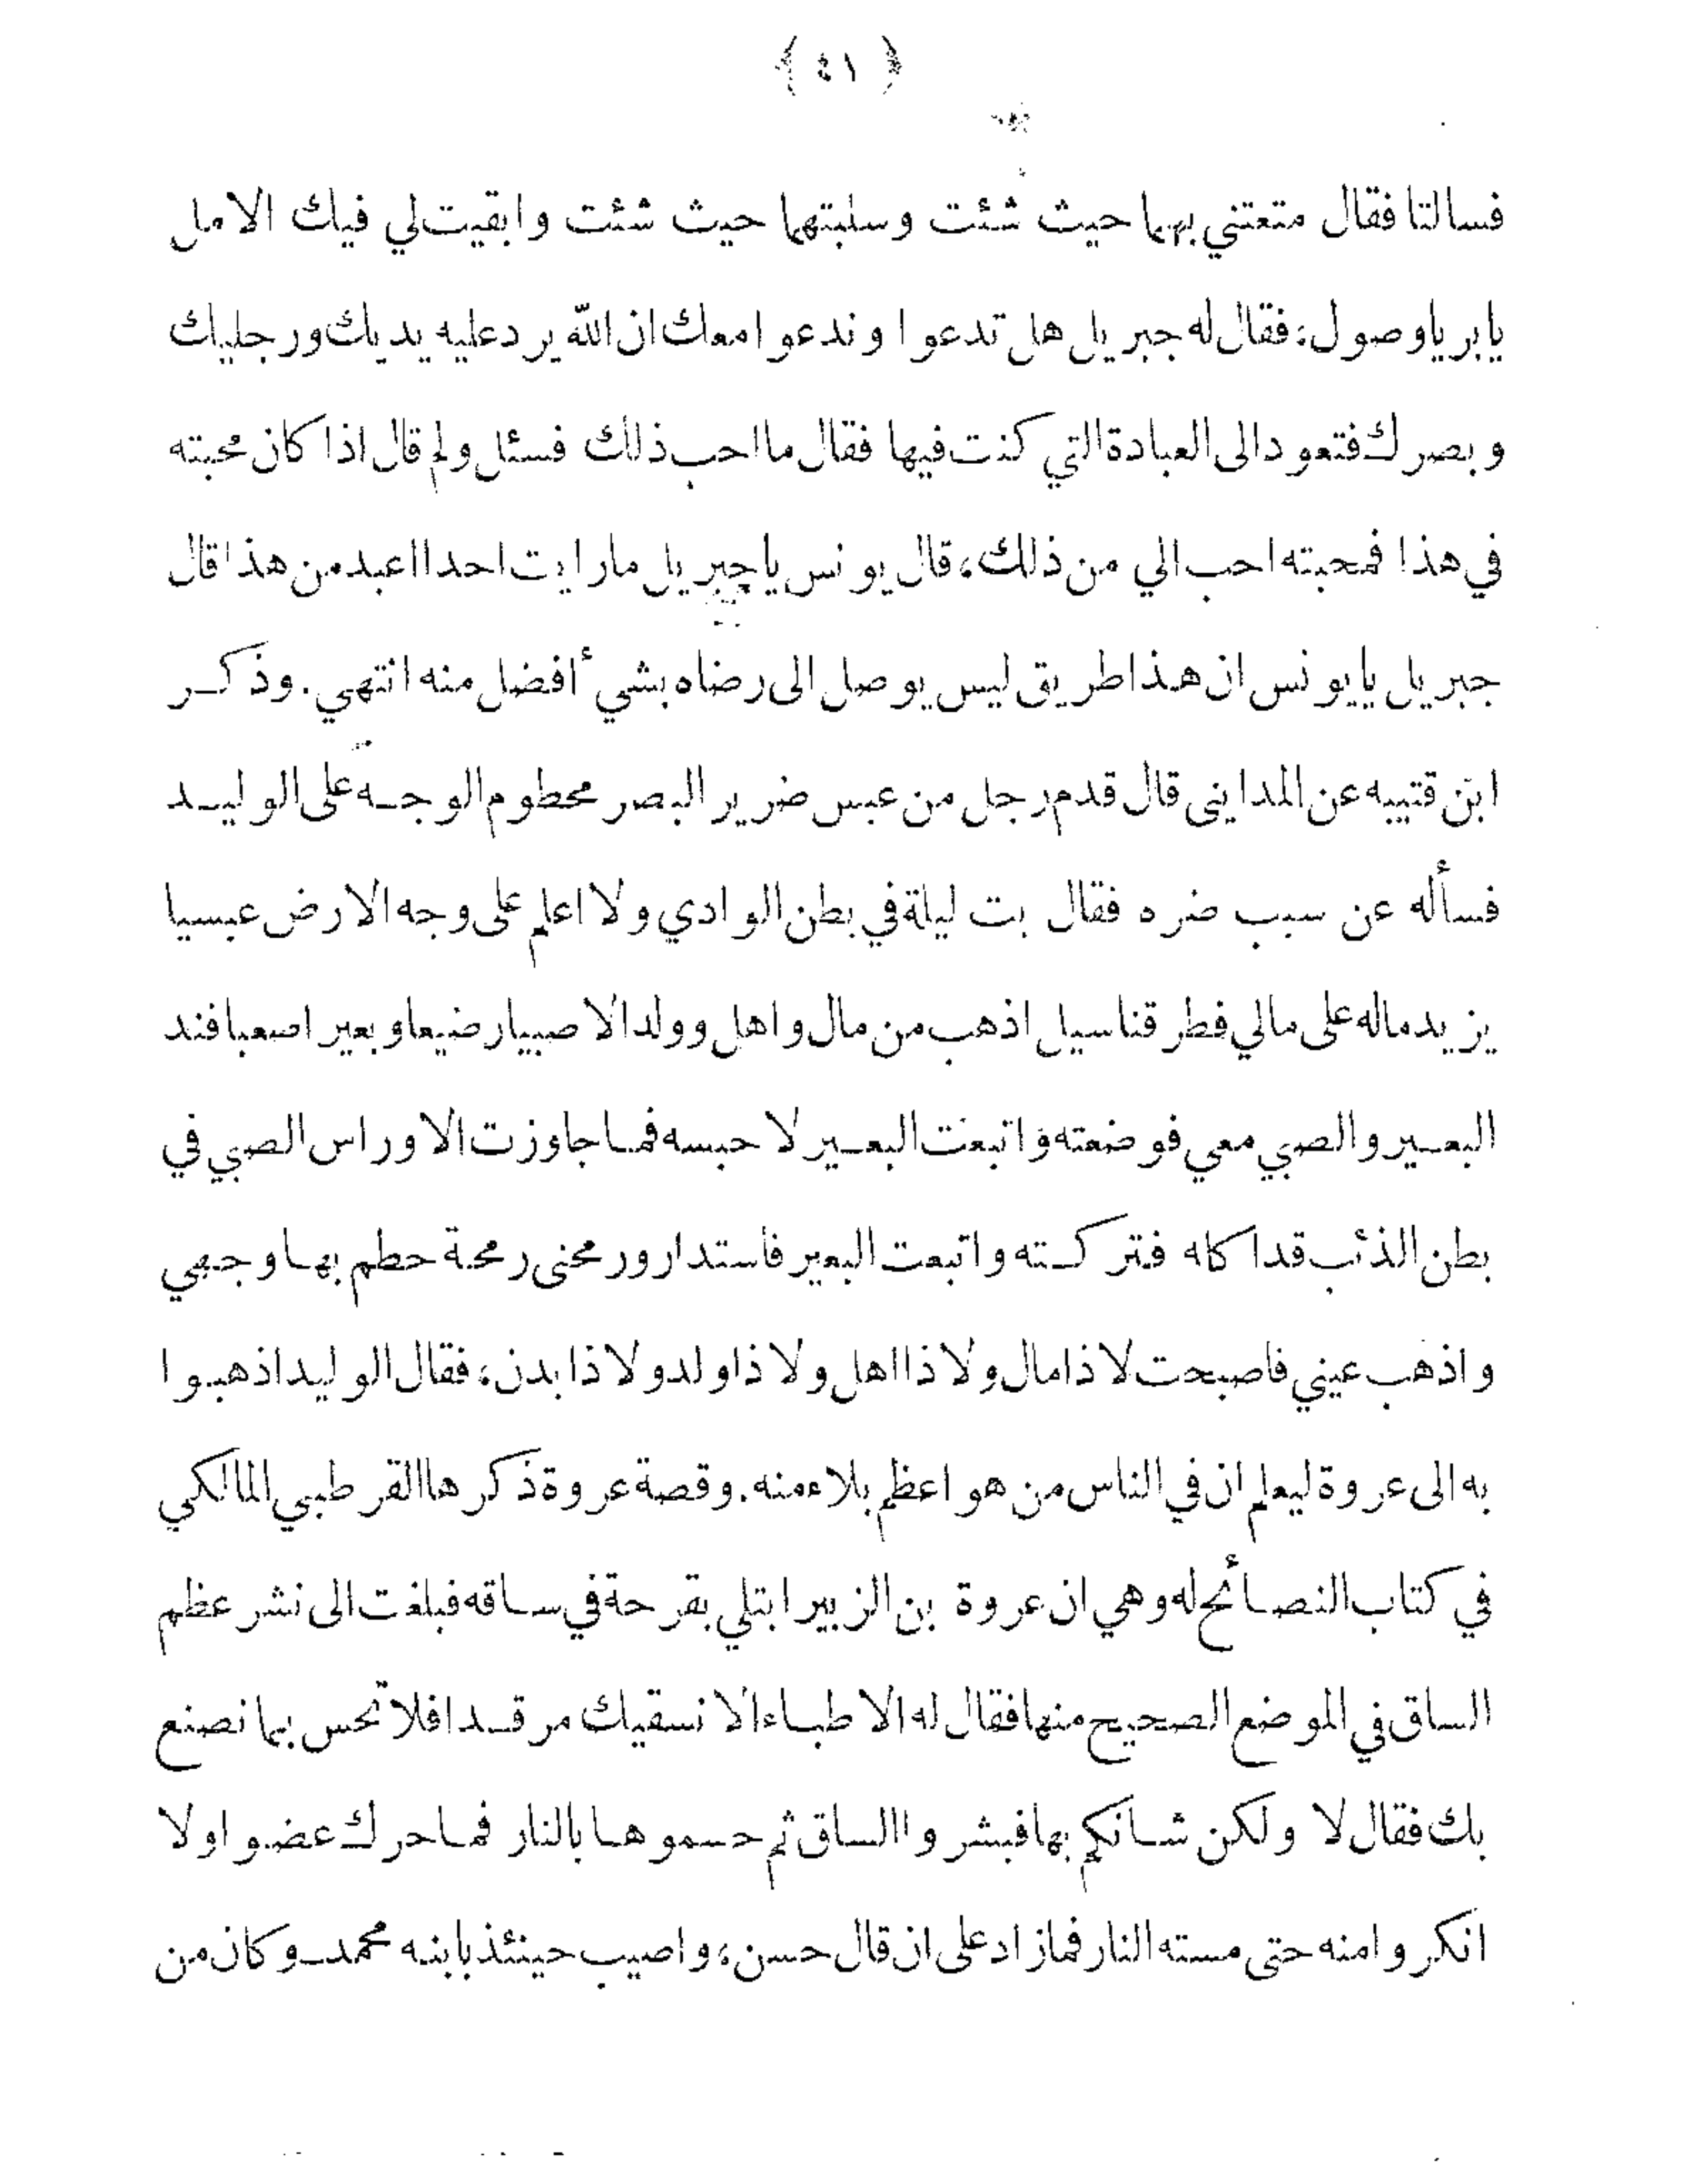 ﴿ ٤١ ﴾
فسالتا فقال متعتني بهما حيث شئت وسلبتهما حيث شئت وابقيت لي فيك الامل
يابر ياوصول، فقال له جبريل هل تدعوا وندعو امعك ان الله يرد عليه يديك ورجليك
وبصرك فتعود الى العبادة التي كنت فيها فقال ما احب ذلك فسئل ولم قال اذا كان محبته
في هذا فمحبته احب الي من ذلك، قال يونس ياجبريل مارايت احدا اعبد من هذا قال
جبريل يايونس ان هذا طريق ليس يوصل الى رضاه بشيء أفضل منه انتهي. وذكر
ابن قتيبه عن المدايني قال قدم رجل من عبس ضرير البصر محطوم الوجه على الوليد
فسأله عن سبب ضره فقال بت ليلة في بطن الوادي ولا اعلم على وجه الارض عبسيا
يزيد ماله على مالي فطرقنا سيل اذهب من مال واهل وولد الا صبيا رضيعا وبعيرا صعبا فند
البعير والصبي معي فوضعته واتبعت البعير لاحبسه فما جاوزت الا وراس الصبي في
بطن الذئب قد اكله فتركته واتبعت البعير فاستدار ورمحنى رمحة حطم بها وجهي
واذهب عيني فاصبحت لا ذامال ولا ذا اهل ولا ذاولد ولا ذا بدن، فقال الوليد اذهبوا
به الى عروة ليعلم ان في الناس من هو اعظم بلاء منه. وقصة عروة ذكرها القرطبي المالكي
في كتاب النصائح له وهي ان عروة بن الزبير ابتلي بقرحة في ساقه فبلغت الى نشر عظم
الساق في الموضع الصحيح منها فقال له الاطباء الا نسقيك مرقدا فلا تحس بما نصنع
بك فقال لا ولكن شانكم بها فبشروا الساق ثم حسموها بالنار فما حرك عضوا ولا
انكروا منه حتى مسته النار فمازاد على ان قال حسن، واصيب حينئذ بابنه محمد وكان من